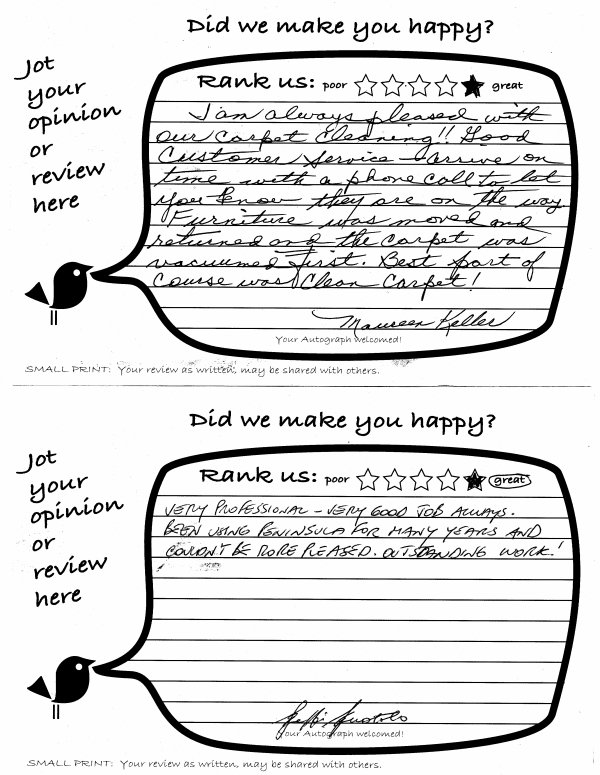 Did we make you happy?
Jot
your
opinion
or
review
here
Rank us: poor great
I am always pleased with
our Carpet Cleaning!! Good
Customer Service - arrive on
time with a phone call to let
you know they are on the way.
Furniture was moved and
returned and the carpet was
vacuumed first. Best part of
Course was Clean Carpet!
Maureen Keller
Your Autograph welcomed!
SMALL PRINT: Your review as written, may be shared with others.
Did we make you happy?
Jot
your
opinion
or
review
here
Rank us: poor great
VERY PROFESSIONAL - VERY GOOD JOB ALWAYS.
BEEN USING PENINSULA FOR MANY YEARS AND
COULDN'T BE MORE PLEASED. OUTSTANDING WORK!
Your Autograph welcomed!
SMALL PRINT: Your review as written, may be shared with others.